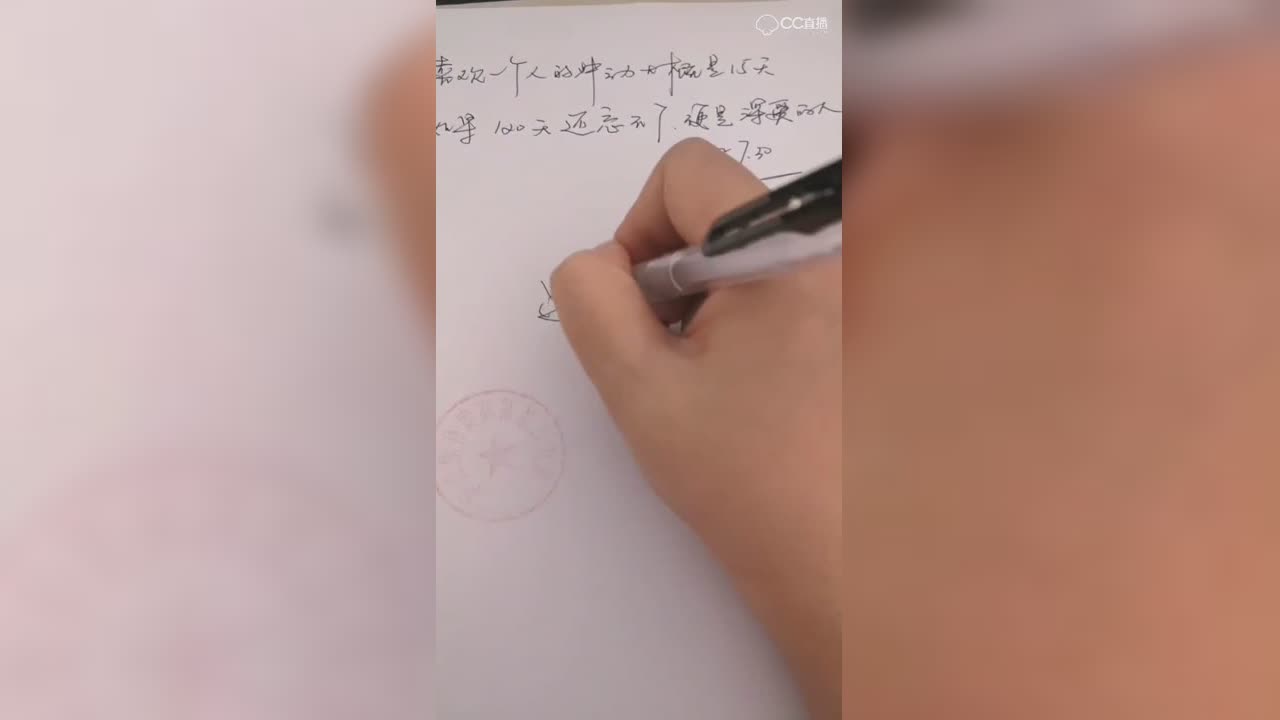 CC直播
喜欢一个人的冲动大概是15天
如果120天还忘不了.便是深爱的人
7.30